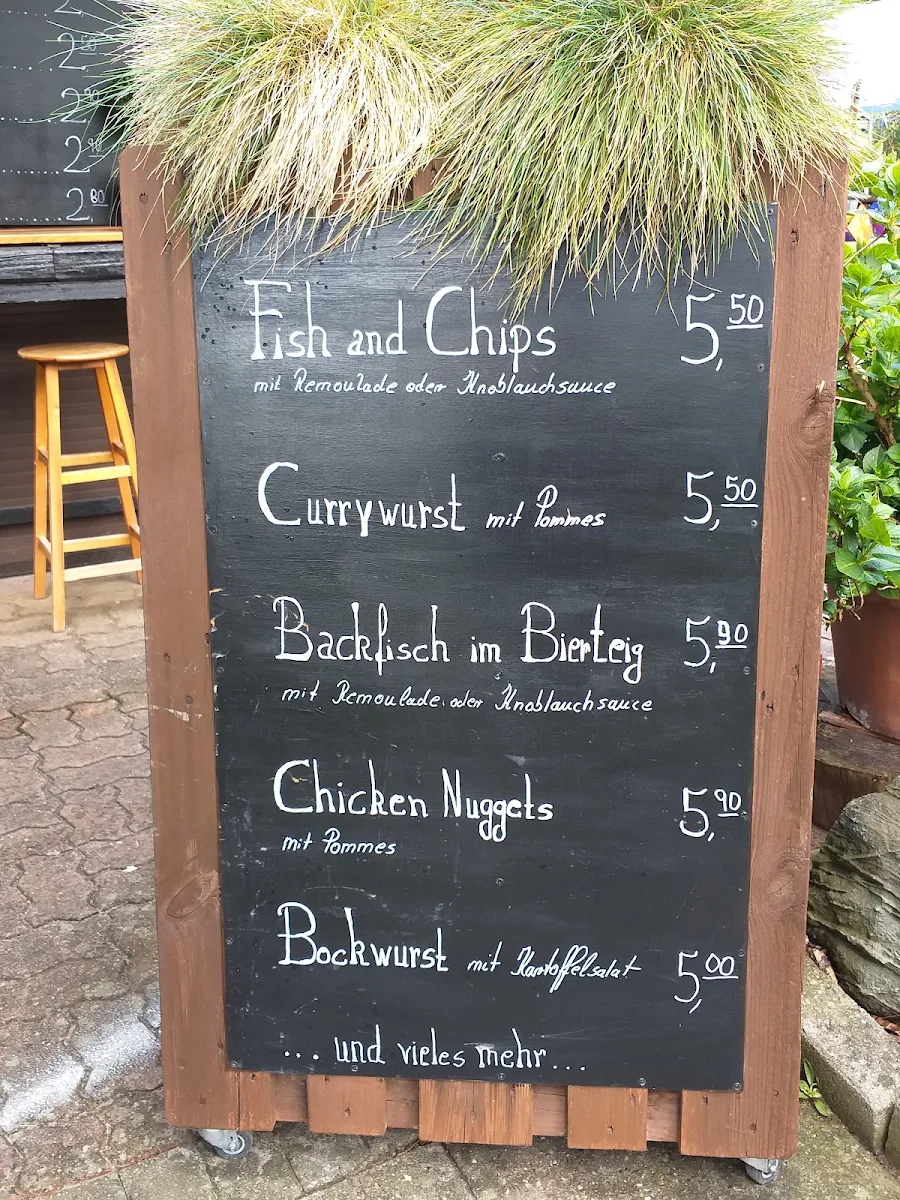 2,50
2,90
2,90
2,80
Fish and Chips 5,50
mit Remoulade oder Knoblauchsauce
Currywurst mit Pommes 5,50
Backfisch im Bierteig 5,90
mit Remoulade oder Knoblauchsauce
Chicken Nuggets 5,90
mit Pommes
Bockwurst mit Kartoffelsalat 5,00
... und vieles mehr...